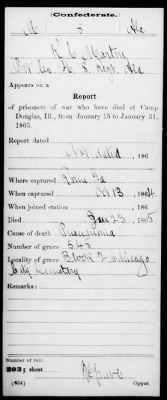 Confederate.
M 3 Ala
R. C. Martin
Pvt Co. H. 3 Regt. Ala
Appears on a
Report
of prisoners of war who have died at Camp
Douglas, Ill., from January 15 to January 31,
1865.
Report dated
Not dated, 186
Where captured Rome Ga
When captured 13, 1864
When joined station , 186
Died Jan 23, 1865
Cause of death Pneumonia
Number of grave 545
Locality of grave Block 2 Chicago
City Cemetery
Remarks:
Number of roll:
203; sheet
(654) Copyist.